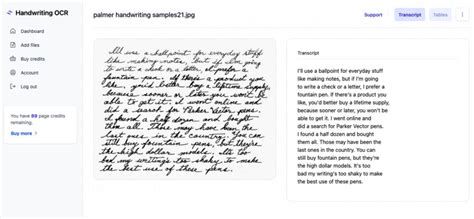 Handwriting OCR
palmer handwriting samples21.jpg
Support
Transcript
Tables
Dashboard
Add files
Buy credits
Account
Log out
You have 88 page credits
remaining.
Buy more
I'll use a ballpoint for everyday stuff
like making notes, but if I'm going
to write a check or a letter, I prefer a
fountain pen. If there's a product you
like, you'd better buy a lifetime supply,
because sooner or later you won't be
able to get it. I went online and
did a search for Parker Vector pens.
I found a half dozen and bought
them all. Those may have been the
last ones in the country. You can
still buy fountain pens, but they're
the high dollar models. It's too
bad my writing's too shaky to make
the best use of these pens.
Transcript
I'll use a ballpoint for everyday stuff
like making notes, but if I'm going
to write a check or a letter, I prefer a
fountain pen. If there's a product you
like, you'd better buy a lifetime supply,
because sooner or later, you won't be
able to get it. I went online and
did a search for Parker Vector pens.
I found a half dozen and bought
them all. Those may have been the
last ones in the country. You can
still buy fountain pens, but they're
the high dollar models. It's too
bad my writing's too shaky to make
the best use of these pens.